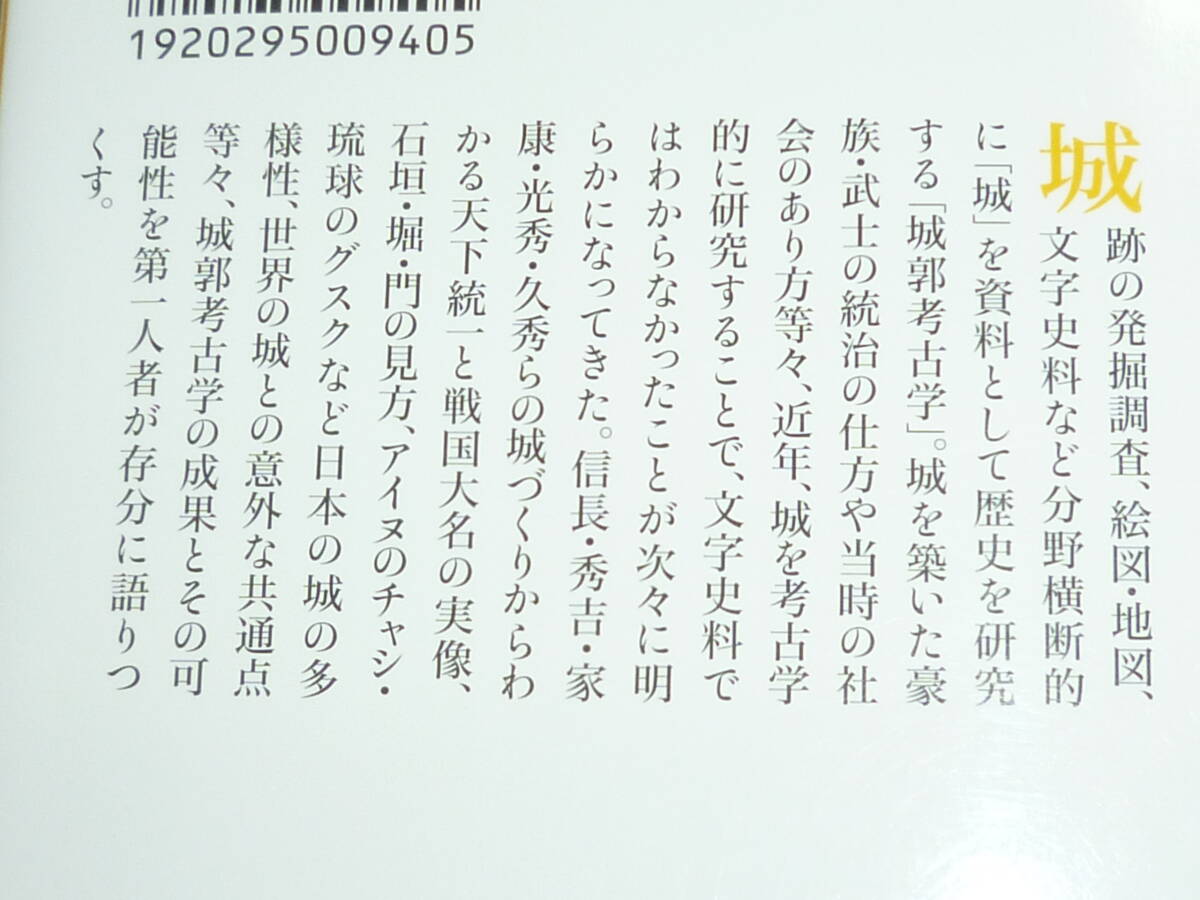 1920295009405
城跡の発掘調査、絵図・地図、
文字史料など分野横断的
に「城」を資料として歴史を研究
する「城郭考古学」。城を築いた豪
族・武士の統治の仕方や当時の社
会のあり方等々、近年、城を考古学
的に研究することで、文字史料で
はわからなかったことが次々に明
らかになってきた。信長・秀吉・家
康・光秀・久秀らの城づくりからわ
かる天下統一と戦国大名の実像、
石垣・堀・門の見方、アイヌのチャシ・
琉球のグスクなど日本の城の多
様性、世界の城との意外な共通点
等々、城郭考古学の成果とその可
能性を第一人者が存分に語りつ
くす。